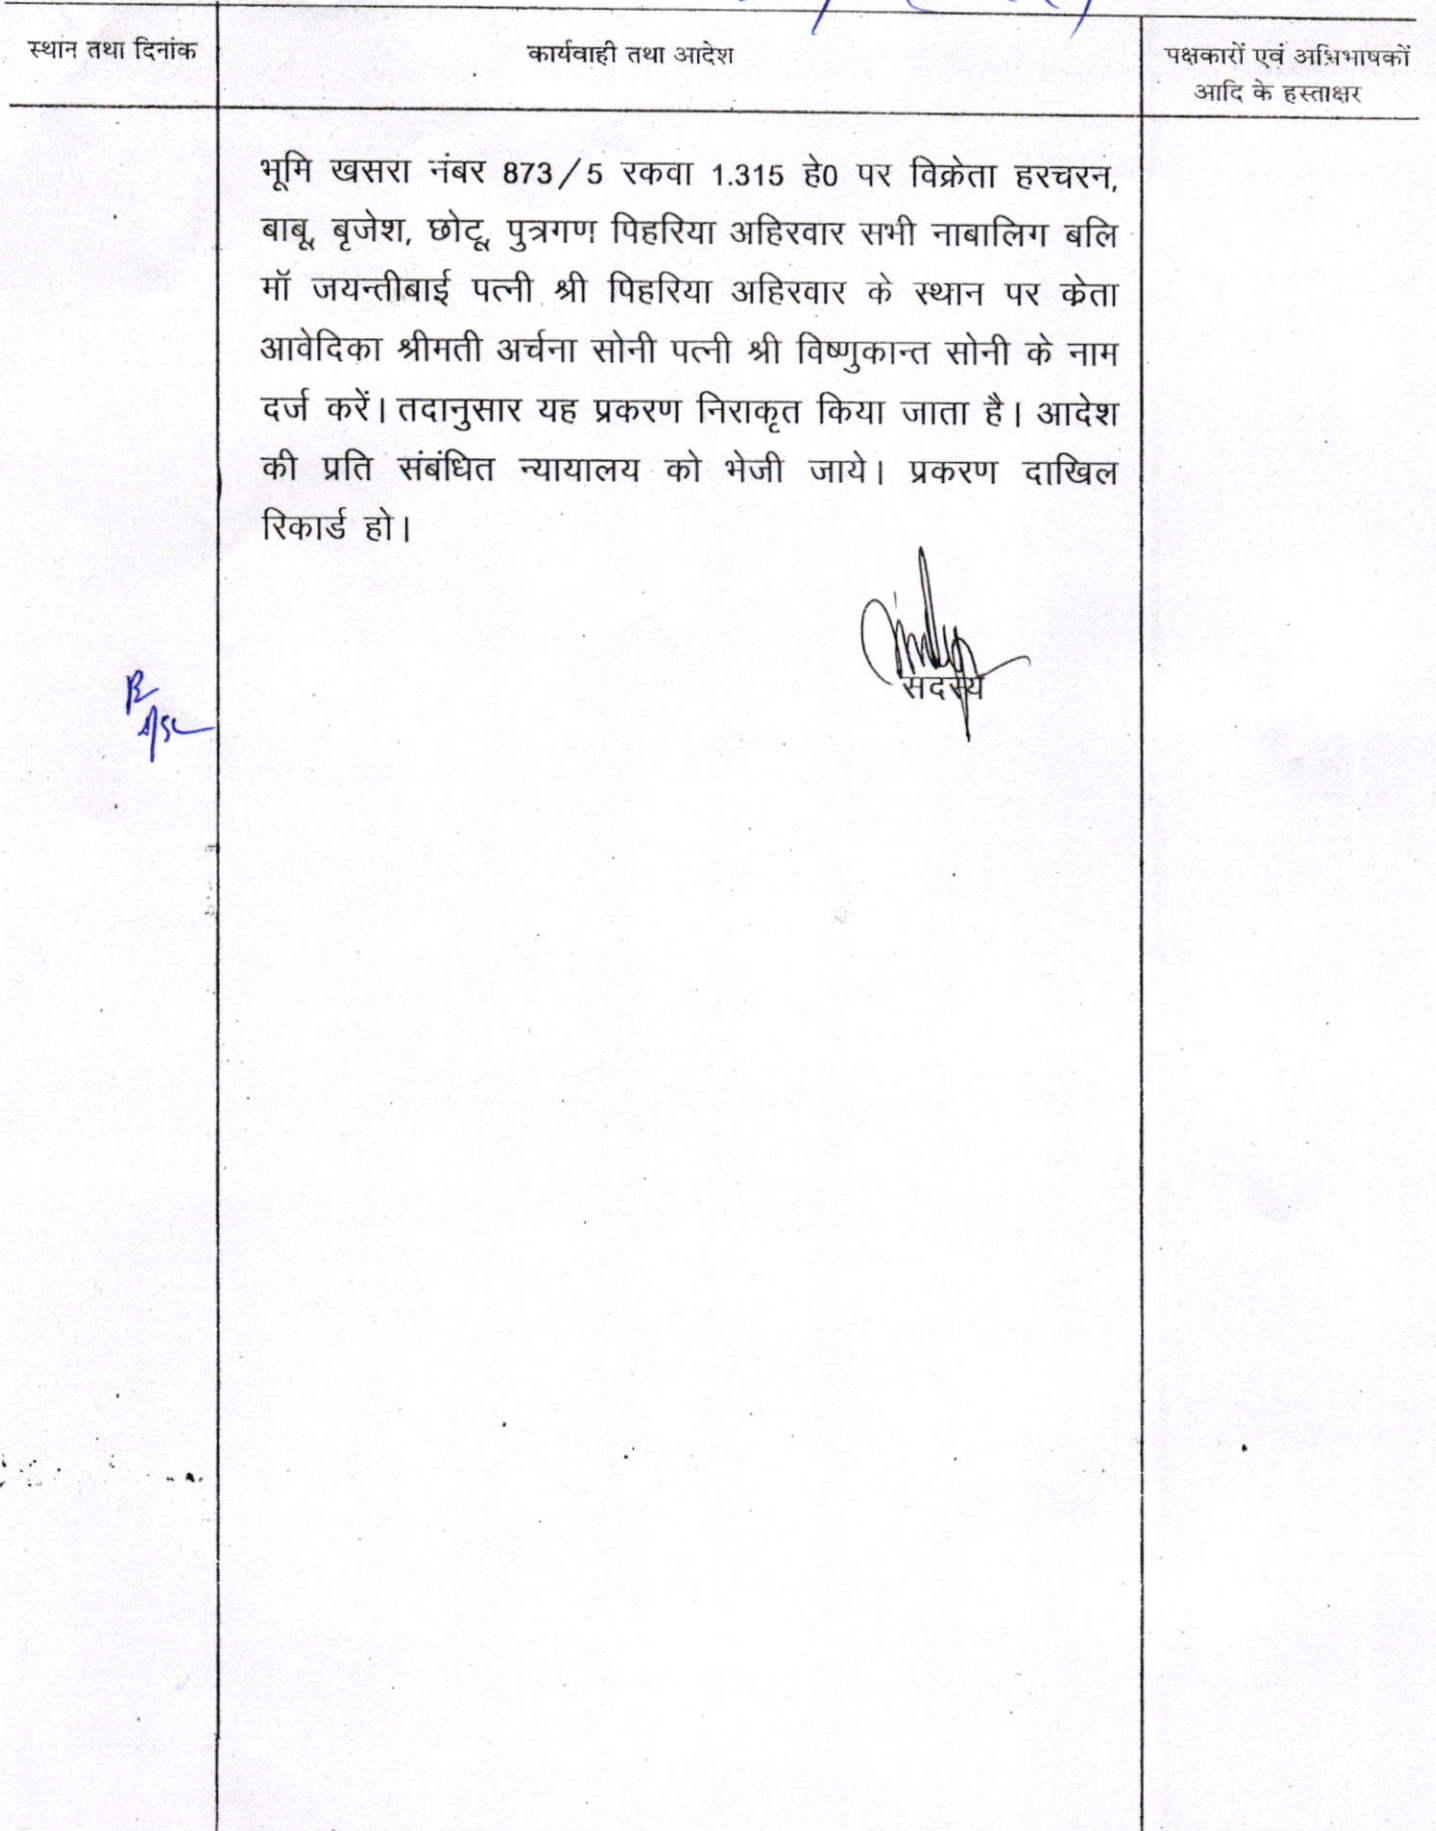 स्थान तथा दिनांक
कार्यवाही तथा आदेश
पक्षकारों एवं अभिभाषकों
आदि के हस्ताक्षर
भूमि खसरा नंबर 873/5 रकवा 1.315 हे0 पर विक्रेता हरचरन,
बाबू, बृजेश, छोटू, पुत्रगण पिहरिया अहिरवार सभी नाबालिग बलि
मॉ जयन्तीबाई पत्नी श्री पिहरिया अहिरवार के स्थान पर केता
आवेदिका श्रीमती अर्चना सोनी पत्नी श्री विष्णुकान्त सोनी के नाम
दर्ज करें। तदानुसार यह प्रकरण निराकृत किया जाता है। आदेश
की प्रति संबंधित न्यायालय को भेजी जाये। प्रकरण दाखिल
रिकार्ड हो।
सदस्य